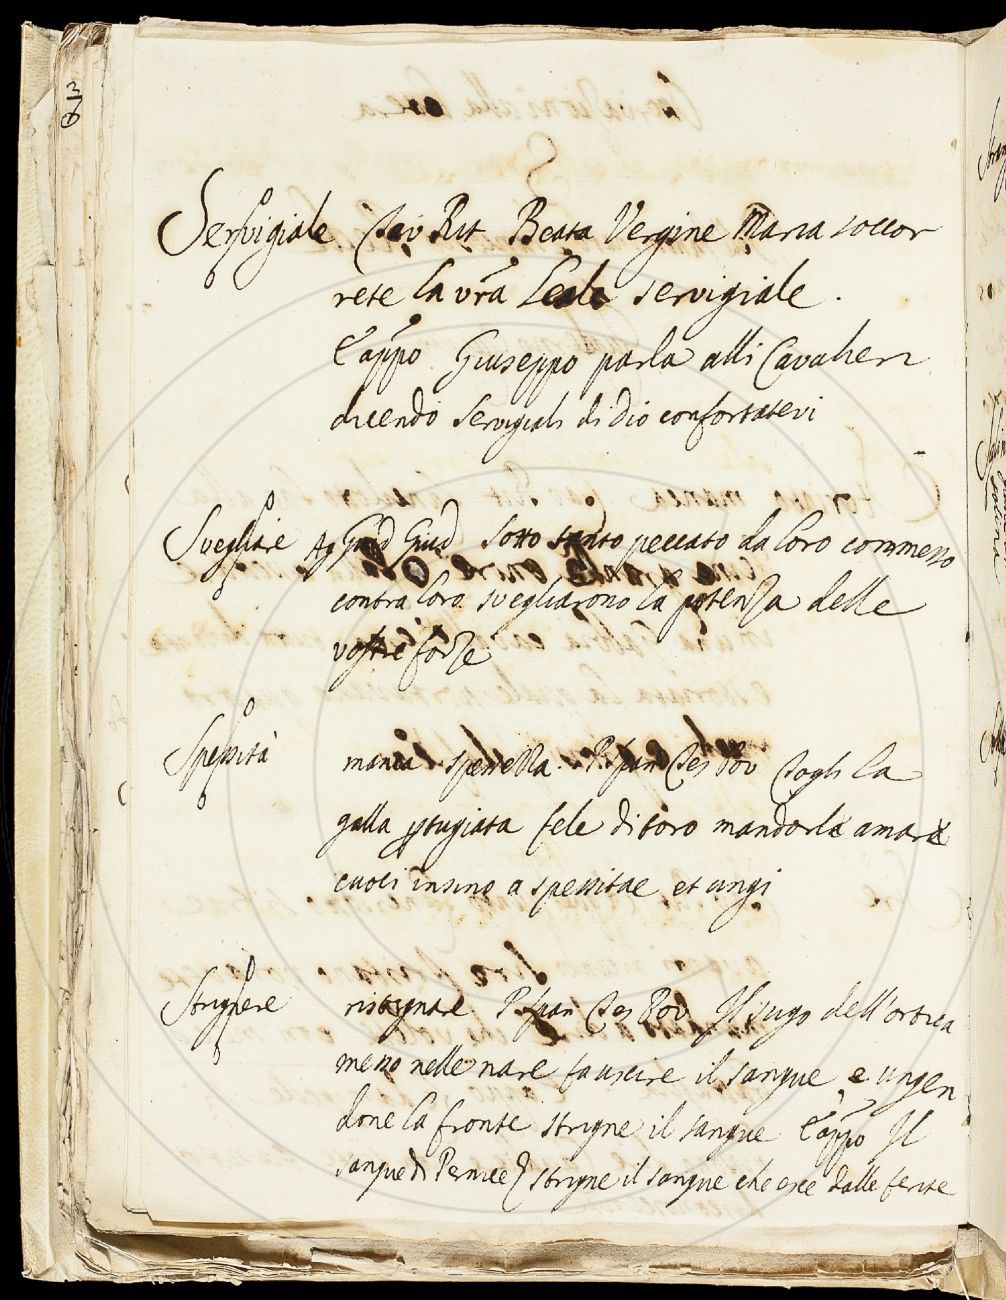 Servigiale Cav Rit Beata Vergine Maria soccor
rete la vr̃a Leale servigiale.
E appo Giuseppo parla alli Cavalieri
dicendo servigiali di Dio confortatevi
Svegliare Giud sotto santo peccato da loro commesso
contra loro svegliarono la potenza delle
vostre forze
Spessità manca spessezza. P. span Tes Pov Togli la
galla pertugiata fele di toro mandorle amare
cuoci insino a spessitae et ungi
Strignere ristagnare P. span Tes Pov Il sugo dell'ortica
messo nelle nare fa uscire il sangue, e ungen
done la fronte strigne il sangue E appo Il
sangue di Pernice strigne il sangue che esce dalle ferite